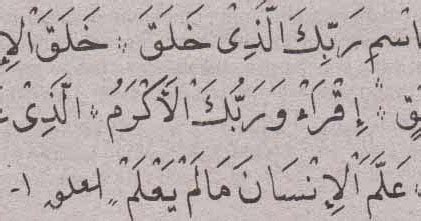 اسْمِ رَبِّكَ الَّذِىْ خَلَقَ ۞ خَلَقَ الْاِ
إِقْرَاْ وَرَبُّكَ الْاَكْرَمُ ۞ الَّذِىْ
عَلَّمَ الْاِنْسَانَ مَالَمْ يَعْلَمْ العلق ١-